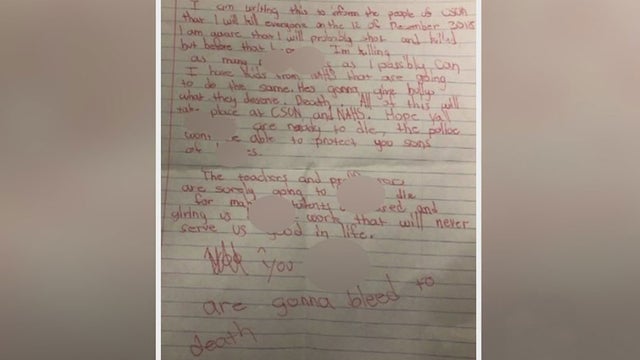 I am writing this to inform the people of CSUN
that I will kill everyone on the 12 of December 2018
I am aware that I will probably shot and killed
but before that I I'm killing
as many as I possibly can
I have kids from NAHS that are going
to do the same. Hes gonna give
what they deserve. Death. All of this will
take place at CSUN and NAHS. Hope yall
are ready to die, the police
wont be able to protect you sons
The teachers and
are surely going to die
for and
giving us work that will never
serve us good in life.
You
are gonna bleed to
death